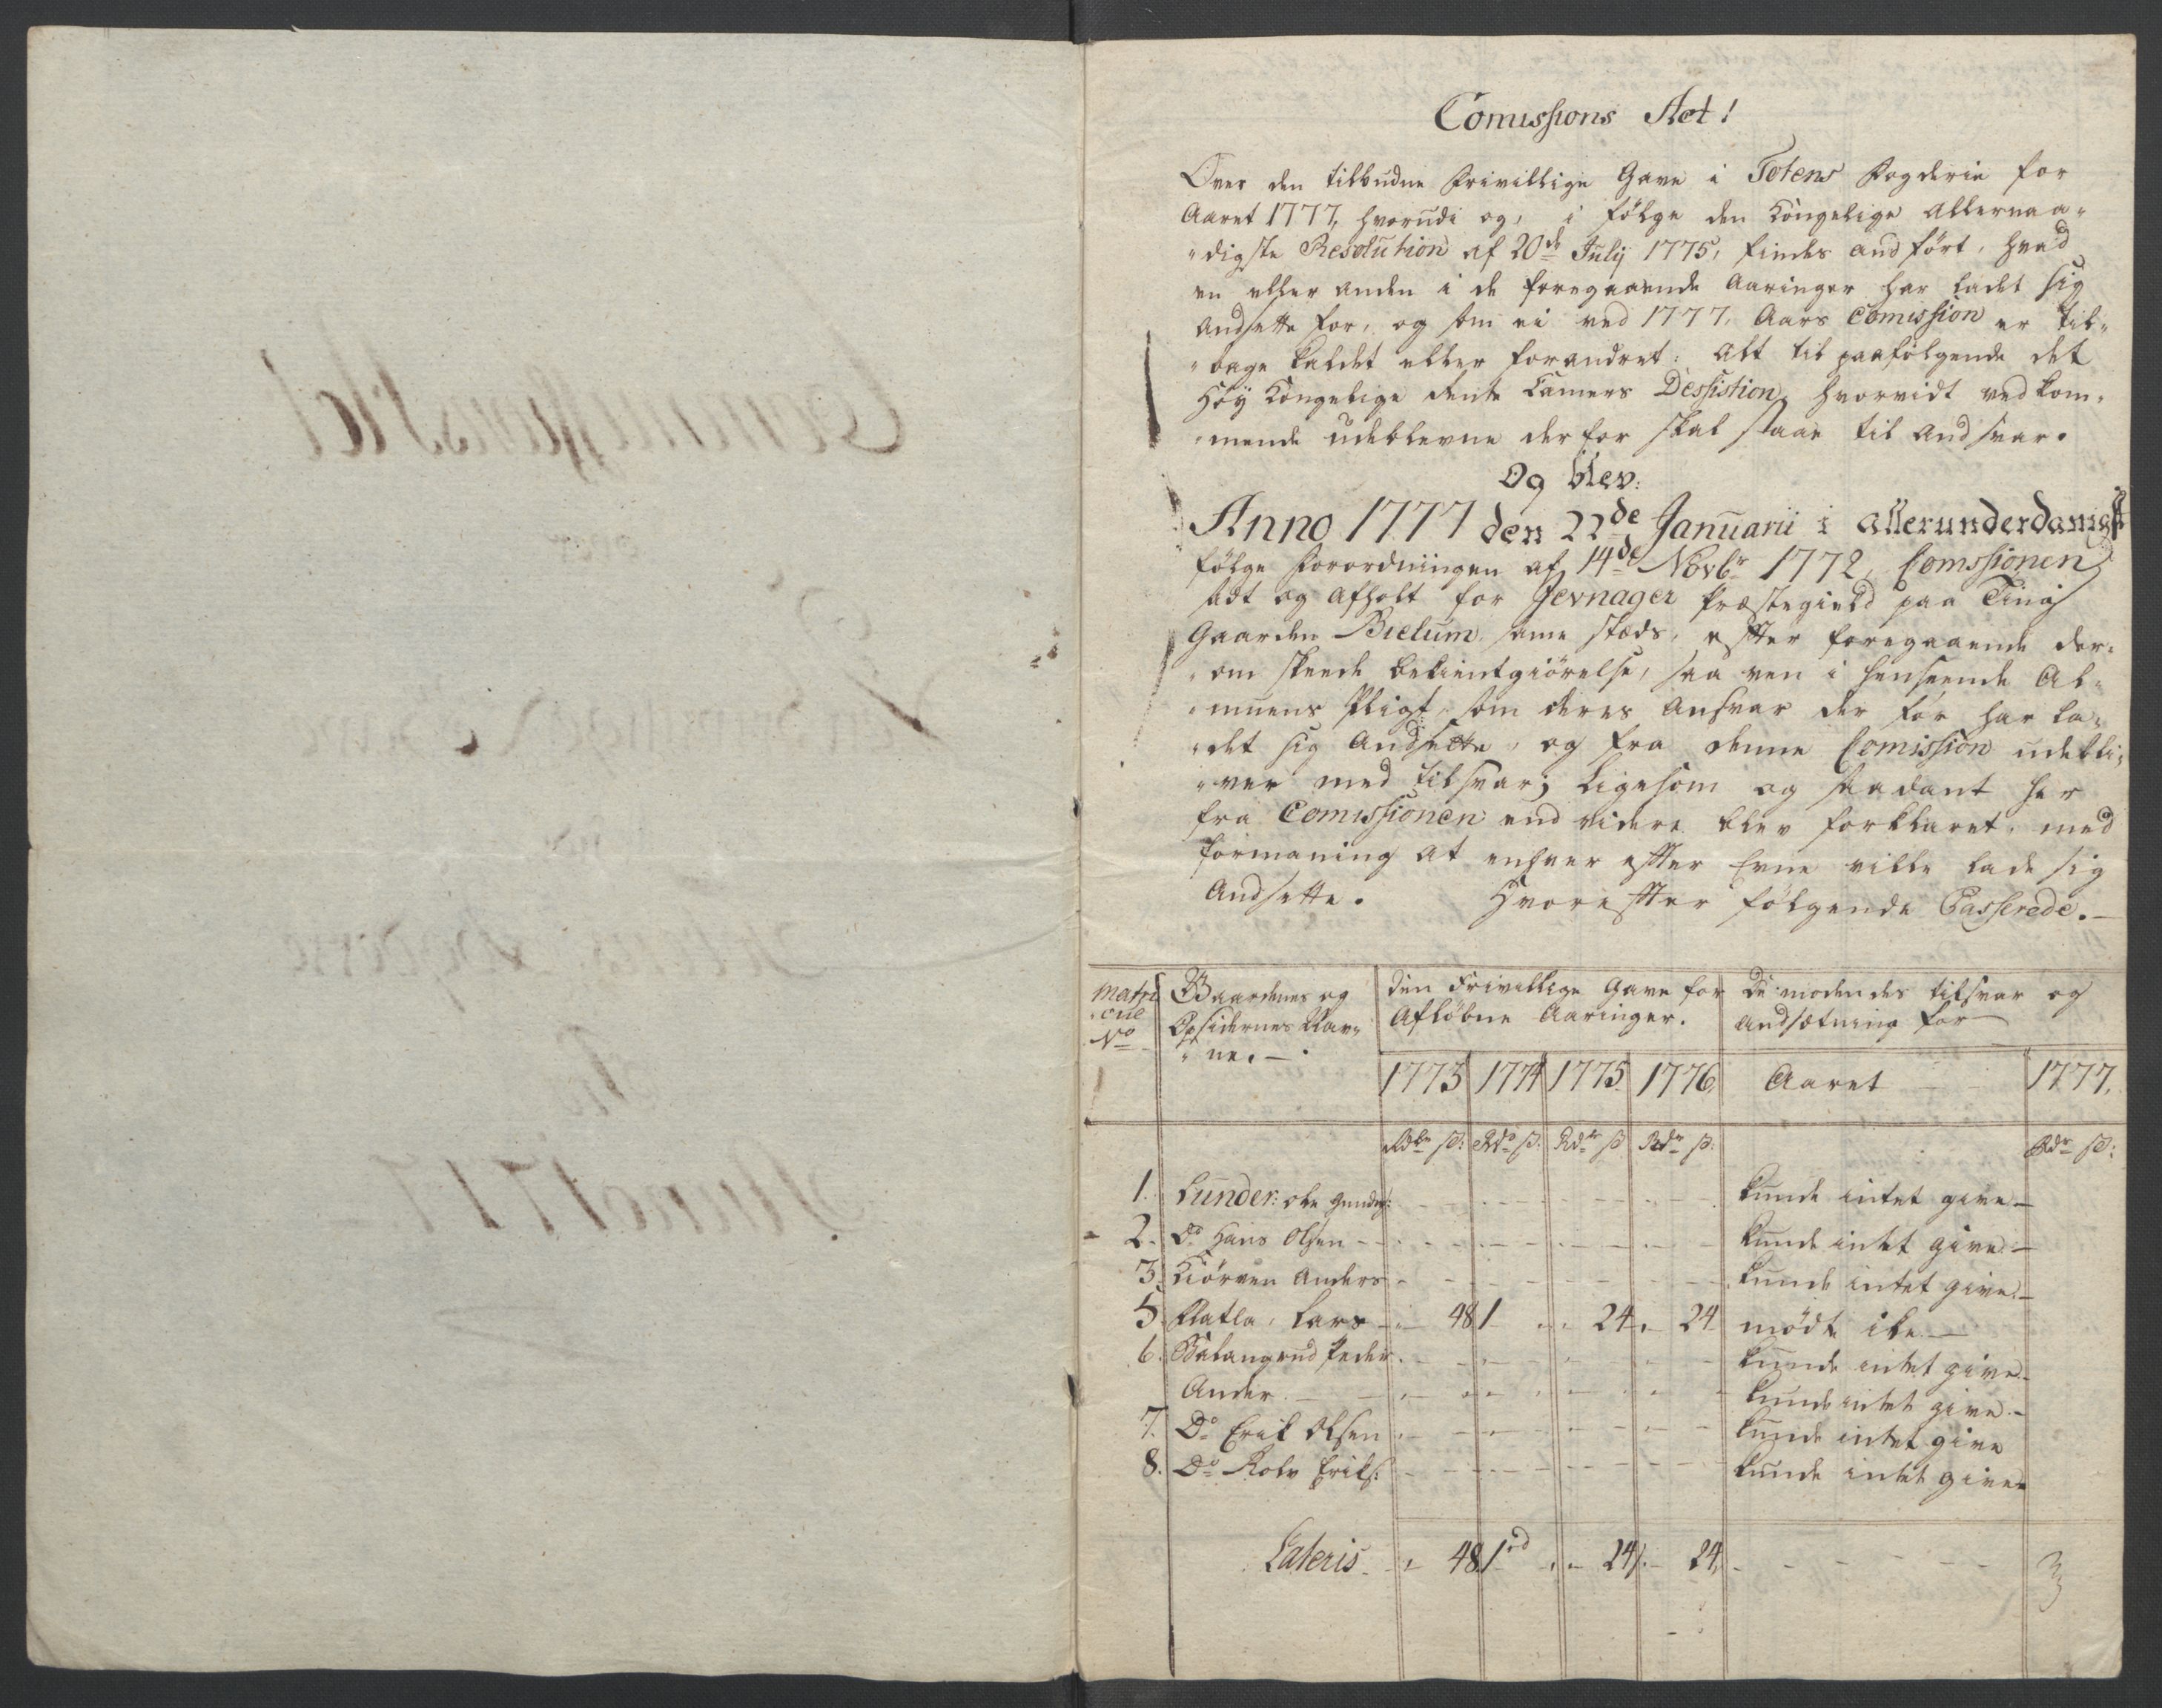 Comissions Act!
Over den tilbudne Frivillige Gave i Totens Fogderie for
Aaret 1777, hvorudi og, i følge den Kongelige Allernaa-
"digste Resolution af 20de Julij 1775, findes andført, hvad
en eller anden i de foregaaende Aaringer har ladet sig
Andsette for, og som ei ved 1777 Aars Comission er til-
"bage kaldet eller forandret: alt til paafølgende det
Høy Kongelige Rente Camers Desistion, hvorvidt vedkom-
"mende udeblevne derfor skal staae til andsvar.
Og blev:
Anno 1777 den 22de Januarii i allerunderdanigst
følge Forordningen af 14de Novbr 1772, Comssionen
sadt og afholt for Jevnager Præstegield paa Ting
Gaarden Bielum samestæds, efter foregaaende der-
"om skeede bekientgiörelse, saa vel i henseende Al-
"muens Pligt, som deres Ansvar der for har la-
"det sig Andsette, og fra denne Comission udebli-
"ver med tilsvar; ligesom og saadant her
fra Comissionen end videre blev forklaret, med
formaning at enhver efter Evne ville lade sig
Andsette. Hvorefter følgende Passerede.
Matri
"cule
No
Gaardenes og
Opsidernes Nav-
"ne.
Den Frivillige Gave for
Afløbne Aaringer.
De mødendes tilsvar og
andsætning for
1773 1774 1775 1776 Aaret 1777.
Rdr ß: Rdr ß: Rdr ß Rdr ß: Rdr ß:
1. Lunder: Ole kunde intet give
2. Do Hans Olsen kunde intet give
3. Kiørven Anders kunde intet give
5. Flatla, Lars 48 1 24 24 mødte ike
6. Bilangrud Peder kunde intet give
Ander kunde intet give
7. Do Erik Olsen kunde intet give
8. Do Rolv Eriks: kunde intet give
Lateris 48 1 24 24